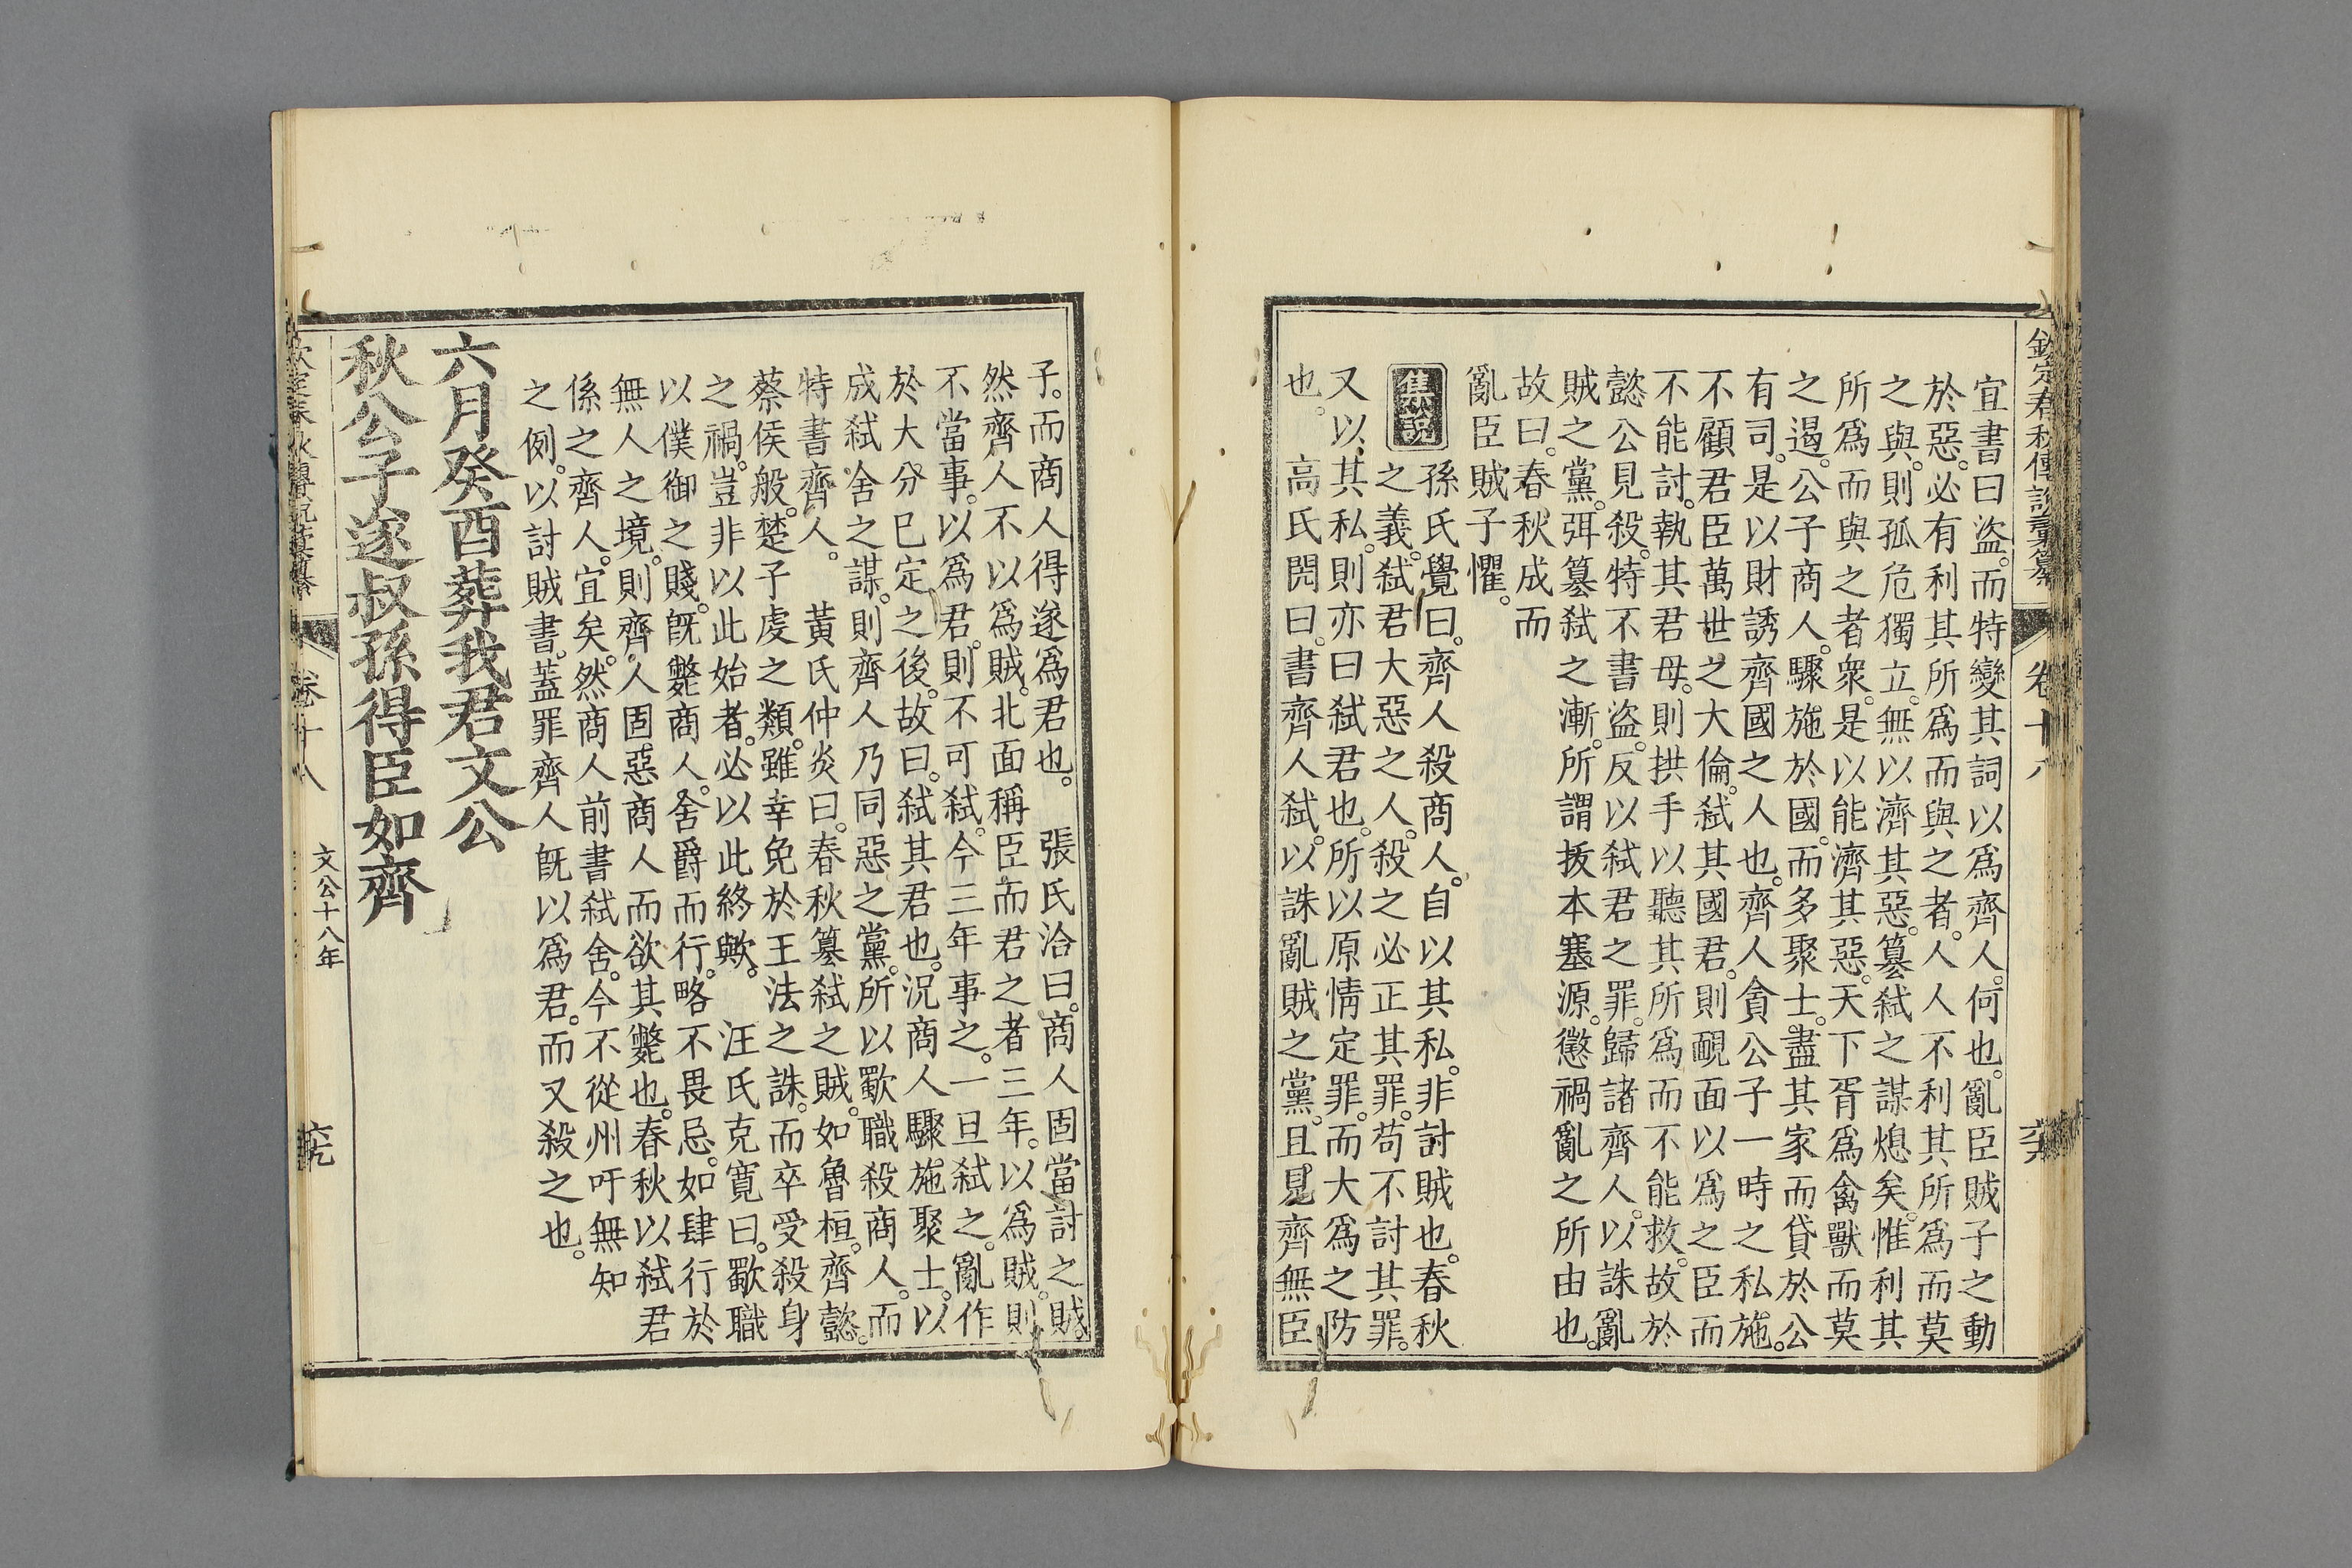 欽定春秋傳說彙纂 卷十八
宜書曰盜。而特變其詞以爲齊人。何也。亂臣賊子之動
於惡。必有利其所爲而與之者。人人不利其所爲而莫
之與。則孤危獨立。無以濟其惡。篡弑之謀熄矣。惟利其
所爲而與之者衆。是以能濟其惡。天下胥爲禽獸而莫
之遏。公子商人。驟施於國。而多聚士。盡其家而貸於公
有司。是以財誘齊國之人也。齊人貪公子一時之私施。
不顧君臣萬世之大倫。弑其國君。則靦面以爲之臣而
不能討。執其君母。則拱手以聽其所爲而不能救。故於
懿公見殺。特不書盜。反以弑君之罪。歸諸齊人。以誅亂
賊之黨。弭篡弑之漸。所謂拔本塞源。懲禍亂之所由也。
故曰。春秋成而
亂臣賊子懼。
集說 孫氏覺曰。齊人殺商人。自以其私。非討賊也。春秋
之義。弑君大惡之人。殺之必正其罪。苟不討其罪。
又以其私。則亦曰弑君也。所以原情定罪。而大爲之防
也。 高氏閌曰。書齊人弑。以誅亂賊之黨。且見齊無臣
子。而商人得遂爲君也。 張氏洽曰。商人固當討之賊。
然齊人不以爲賊。北面稱臣而君之者三年。以爲賊。則
不當事。以爲君。則不可弑。今三年事之。一旦弑之。亂作
於大分已定之後。故曰。弑其君也。況商人驟施聚士。以
成弑舍之謀。則齊人乃同惡之黨。所以歜職殺商人。而
特書齊人。 黃氏仲炎曰。春秋篡弑之賊。如魯桓。齊懿。
蔡侯般。楚子虔之類。雖幸免於王法之誅。而卒受殺身
之禍。豈非以此始者。必以此終歟。 汪氏克寬曰。歜職
以僕御之賤。旣斃商人。舍爵而行。略不畏忌。如肆行於
無人之境。則齊人固惡商人而欲其斃也。春秋以弑君
係之齊人。宜矣。然商人前書弑舍。今不從州吁無知
之例。以討賊書。蓋罪齊人旣以爲君。而又殺之也。
六月癸酉葬我君文公
秋公子遂叔孫得臣如齊
卷十八 文公十八年